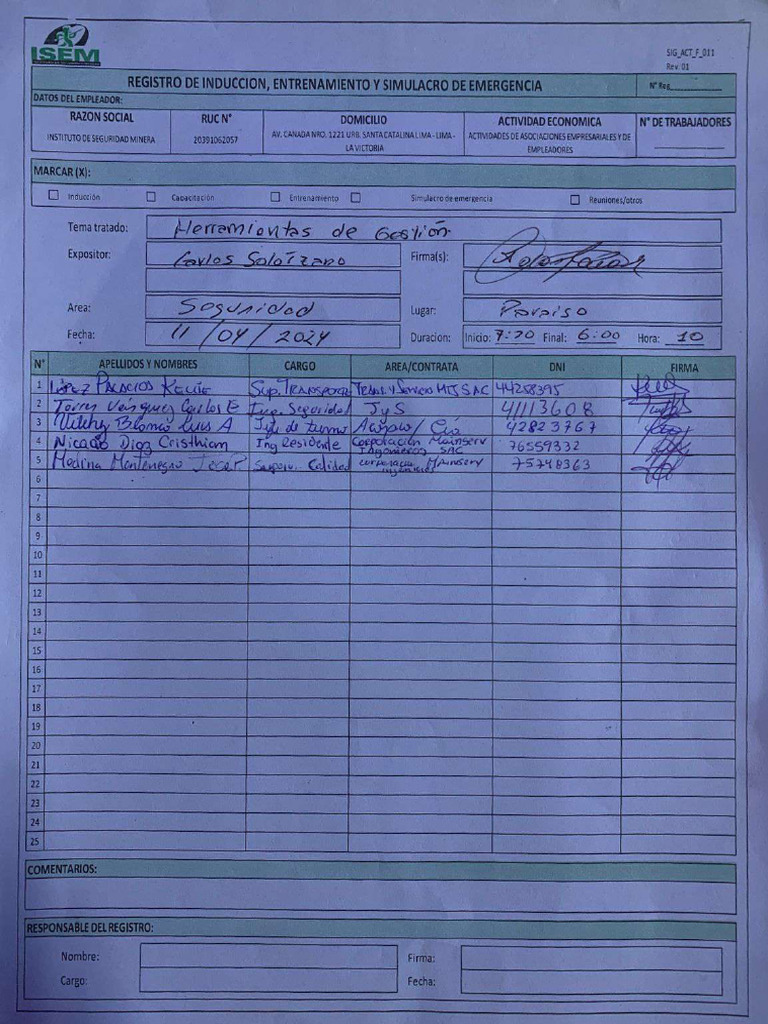 ISEM
SIG_ACT_F_011
Rev. 01
REGISTRO DE INDUCCION, ENTRENAMIENTO Y SIMULACRO DE EMERGENCIA
N° Reg.
DATOS DEL EMPLEADOR:
RAZON SOCIAL RUC N° DOMICILIO ACTIVIDAD ECONOMICA N° DE TRABAJADORES
INSTITUTO DE SEGURIDAD MINERA 20391062057 AV. CANADA NRO. 1221 URB. SANTA CATALINA LIMA - LIMA - LA VICTORIA ACTIVIDADES DE ASOCIACIONES EMPRESARIALES Y DE EMPLEADORES
MARCAR (X):
Inducción Capacitación Entrenamiento Simulacro de emergencia Reuniones/otros
Tema tratado: Herramientas de Gestión.
Expositor: Carlos Solorzano Firma(s):
Area: Seguridad Lugar: Paraiso
Fecha: 11/04/2024 Duracion: Inicio: 7:20 Final: 6:00 Hora: 10
N° APELLIDOS Y NOMBRES CARGO AREA/CONTRATA DNI FIRMA
1 López Palacios Sup. Transporte Trans. y Servicio MTJ SAC 44258395
2 Torres Vásquez Carlos E Ing. Seguridad JyS 41113608
3 Luis A Jefe de turno 42823767
4 Nicacio Diaz Cristhiam Ing Residente Corporación Mainserv Ingenieros SAC 76559332
5 Medina Montenegro Josep Calidad Mainserv 75748363
6
7
8
9
10
11
12
13
14
15
16
17
18
19
20
21
22
23
24
25
COMENTARIOS:
RESPONSABLE DEL REGISTRO:
Nombre: Firma:
Cargo: Fecha: